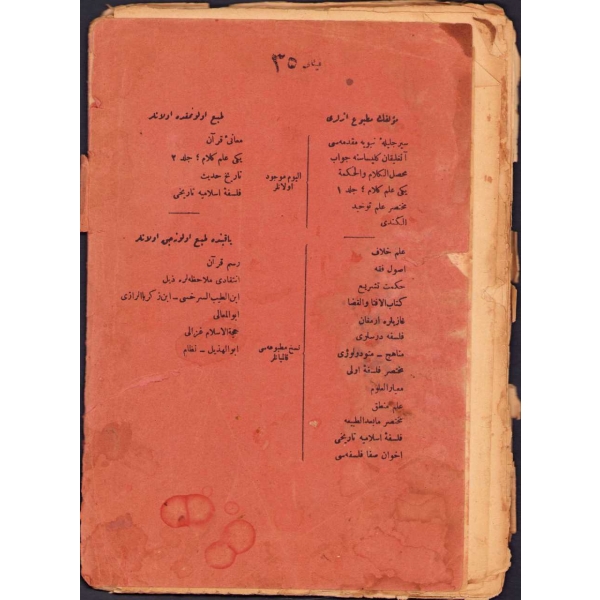 فيئاتى ٣٥
مؤلفك مطبوع اثرلرى
سير جليلهٔ نبويه مقدمه‌سى
آنغليقان كليساسنه جواب
محصل الكلام والحكمة
يكى علم كلام ؛ جلد ١
مختصر علم توحيد
الكندى
اليوم موجود
اولانلر
علم خلاف
اصول فقه
حكمت تشريع
كتاب الافتا والقضا
غازيلره ارمغان
فلسفه درسلرى
مناهج ــ متودولوژى
مختصر فلسفهٔ اولى
معيار العلوم
علم منطق
مختصر مابعدالطبيعه
فلسفهٔ اسلاميه تاريخى
اخوان صفا فلسفه‌سى
نسخ مطبوعه‌سى
قالميانلر
طبع اولونمقده اولانلر
معانئ قرآن
يكى علم كلام ؛ جلد ٢
تاريخ حديث
فلسفهٔ اسلاميه تاريخى
ياقينده طبع اولونه‌جق اولانلر
رسم قرآن
انتقادى ملاحظه‌لره ذيل
ابن الطيب السرخسى ــ ابن ذكريا الرازى
ابو المعالى
حجة الاسلام غزالى
ابو الهذيل ــ نظام